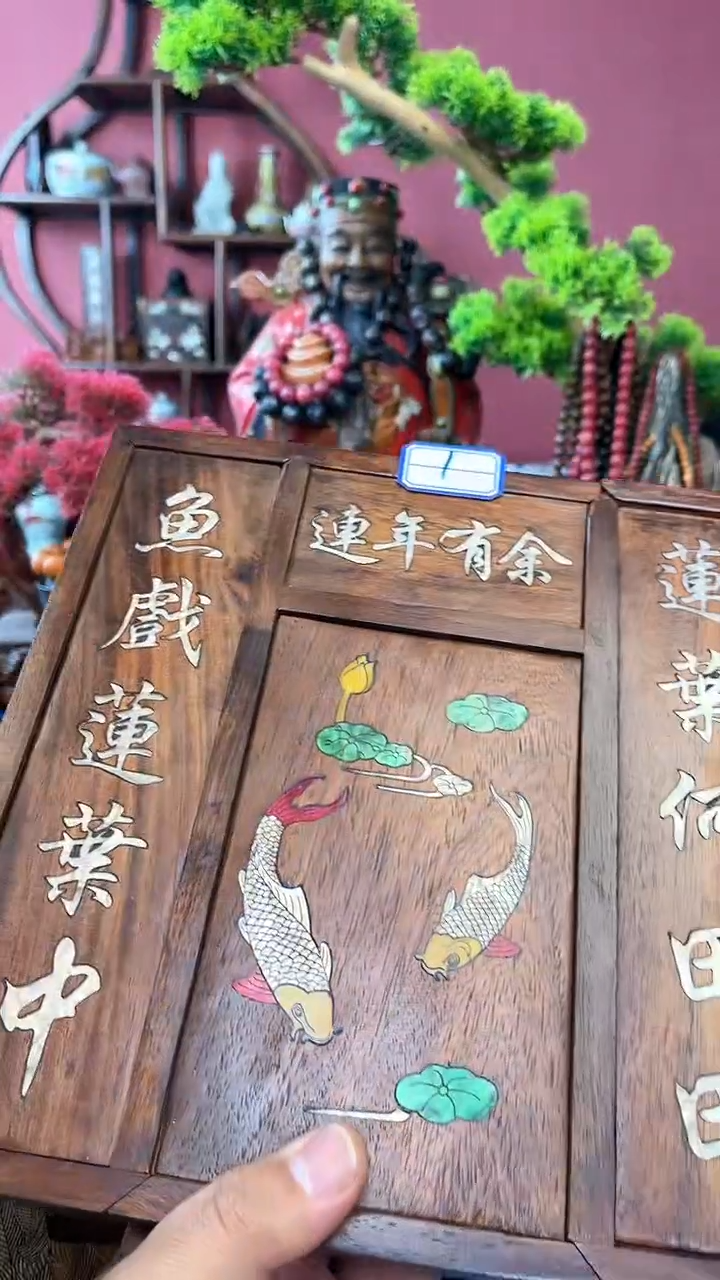 連年有余
蓮葉何田田
魚戲蓮葉中
1